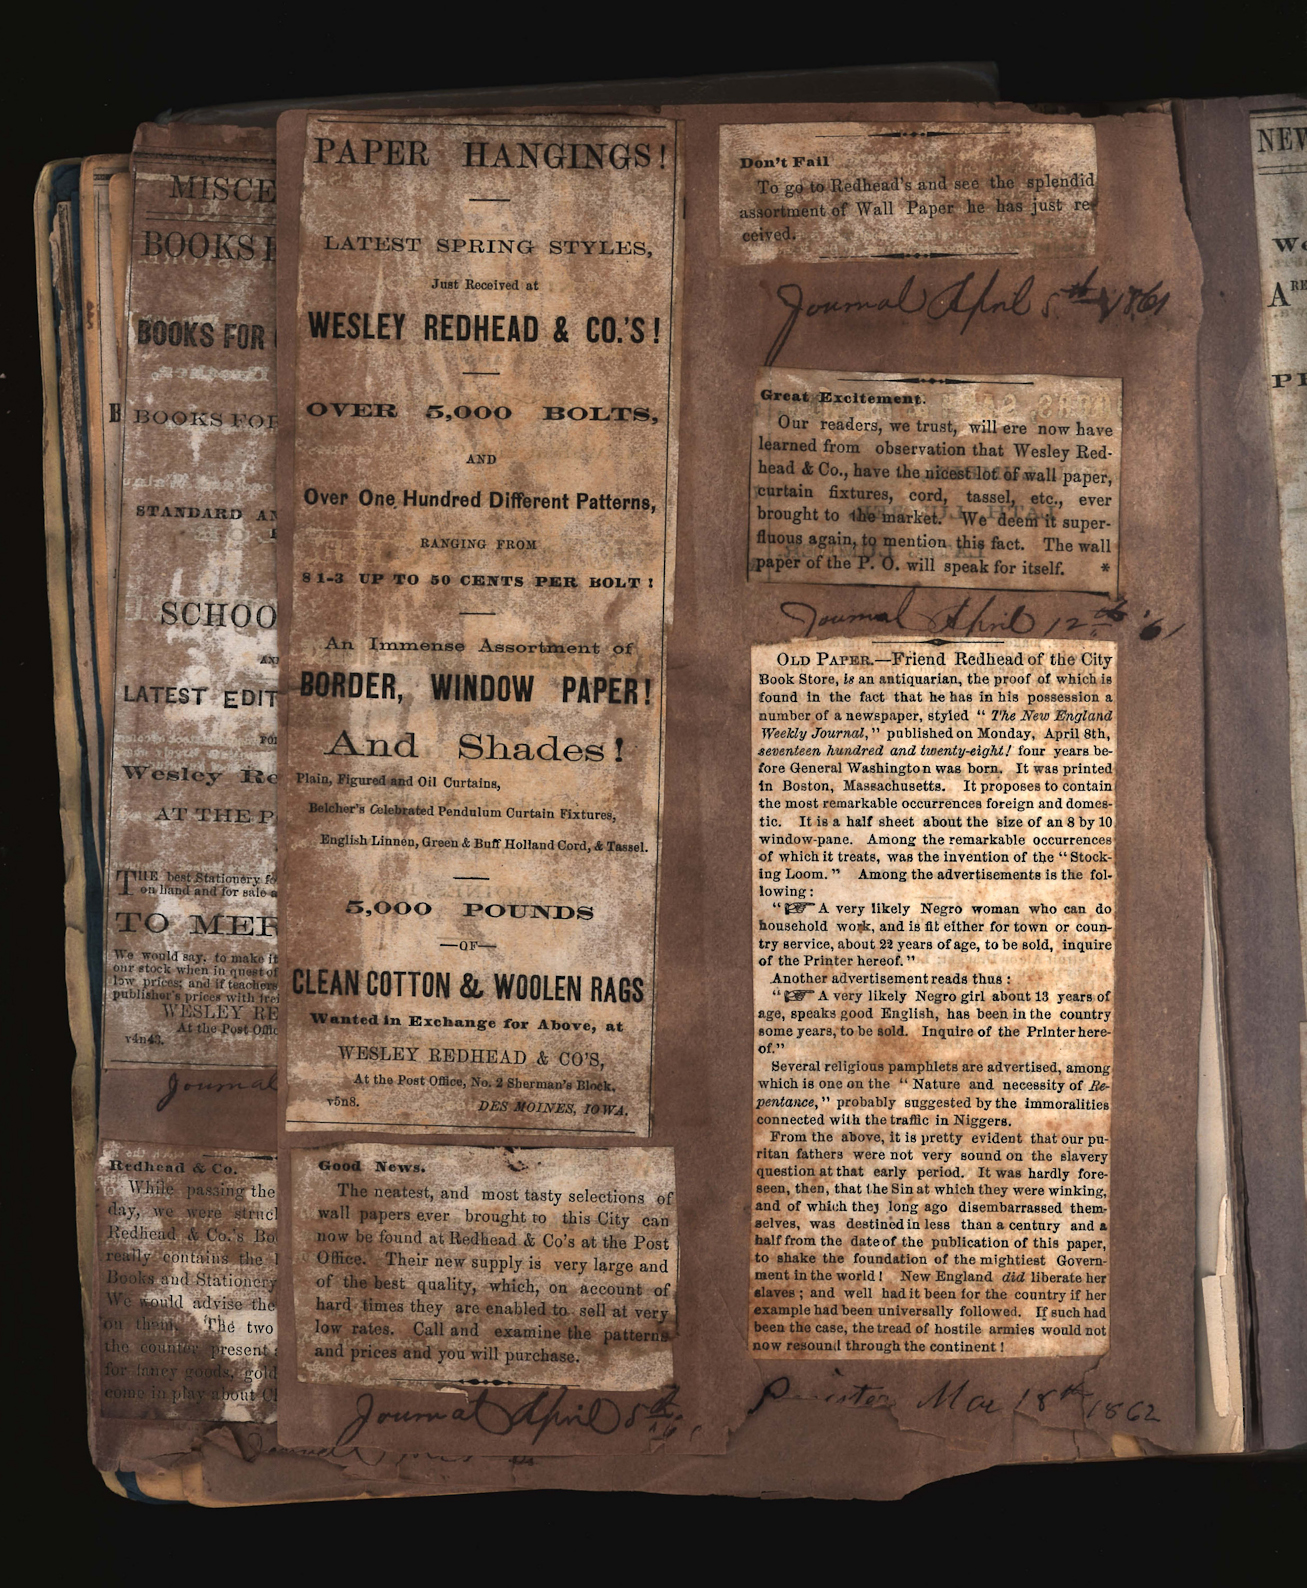 MISCE
BOOKS
BOOKS FOR
B
BOOKS FOR
STANDARD AN
SCHOO
AN
LATEST EDIT
FO
Wesley Re
AT THE P
THE best Stationery fo
on hand and for sale a
TO MER
We would say, to make it
our stock when in quest of
low prices; and if teachers
publisher's prices with
WESLEY RE
At the Post Offic
v4n43.
Journal
Redhead & Co.
While passing the
day, we were struck
Redhead & Co.'s Bo
really contains the
Books and Stationery
We would advise the
on them. The two
the counter present
for fancy goods, gold
come in play about Ch
PAPER HANGINGS!
LATEST SPRING STYLES,
Just Received at
WESLEY REDHEAD & CO.'S!
OVER 5,000 BOLTS,
AND
Over One Hundred Different Patterns,
RANGING FROM
8 1-3 UP TO 50 CENTS PER BOLT!
An Immense Assortment of
BORDER, WINDOW PAPER!
And Shades!
Plain, Figured and Oil Curtains,
Belcher's Celebrated Pendulum Curtain Fixtures,
English Linnen, Green & Buff Holland Cord, & Tassel.
5,000 POUNDS
—OF—
CLEAN COTTON & WOOLEN RAGS
Wanted in Exchange for Above, at
WESLEY REDHEAD & CO'S,
At the Post Office, No. 2 Sherman's Block,
v5n8. DES MOINES, IOWA.
Good News.
The neatest, and most tasty selections of
wall papers ever brought to this City can
now be found at Redhead & Co's at the Post
Office. Their new supply is very large and
of the best quality, which, on account of
hard times they are enabled to sell at very
low rates. Call and examine the patterns
and prices and you will purchase.
Journal April 8th
Don't Fail
To go to Redhead's and see the splendid
assortment of Wall Paper he has just re-
ceived.
Journal April 8th 1861
Great Excitement.
Our readers, we trust, will ere now have
learned from observation that Wesley Red-
head & Co., have the nicest lot of wall paper,
curtain fixtures, cord, tassel, etc., ever
brought to the market. We deem it super-
fluous again, to mention this fact. The wall
paper of the P. O. will speak for itself. *
Journal April 12th '61
OLD PAPER.—Friend Redhead of the City
Book Store, is an antiquarian, the proof of which is
found in the fact that he has in his possession a
number of a newspaper, styled "The New England
Weekly Journal," published on Monday, April 8th,
seventeen hundred and twenty-eight! four years be-
fore General Washington was born. It was printed
in Boston, Massachusetts. It proposes to contain
the most remarkable occurrences foreign and domes-
tic. It is a half sheet about the size of an 8 by 10
window-pane. Among the remarkable occurrences
of which it treats, was the invention of the "Stock-
ing Loom." Among the advertisements is the fol-
lowing:
"☞ A very likely Negro woman who can do
household work, and is fit either for town or coun-
try service, about 22 years of age, to be sold, inquire
of the Printer hereof."
Another advertisement reads thus:
"☞ A very likely Negro girl about 13 years of
age, speaks good English, has been in the country
some years, to be sold. Inquire of the Printer here-
of."
Several religious pamphlets are advertised, among
which is one on the "Nature and necessity of Re-
pentance," probably suggested by the immoralities
connected with the traffic in Niggers.
From the above, it is pretty evident that our pu-
ritan fathers were not very sound on the slavery
question at that early period. It was hardly fore-
seen, then, that the Sin at which they were winking,
and of which they long ago disembarrassed them-
selves, was destined in less than a century and a
half from the date of the publication of this paper,
to shake the foundation of the mightiest Govern-
ment in the world! New England did liberate her
slaves; and well had it been for the country if her
example had been universally followed. If such had
been the case, the tread of hostile armies would not
now resound through the continent!
Mar 18th 1862
NEW
WO
ARE
PI